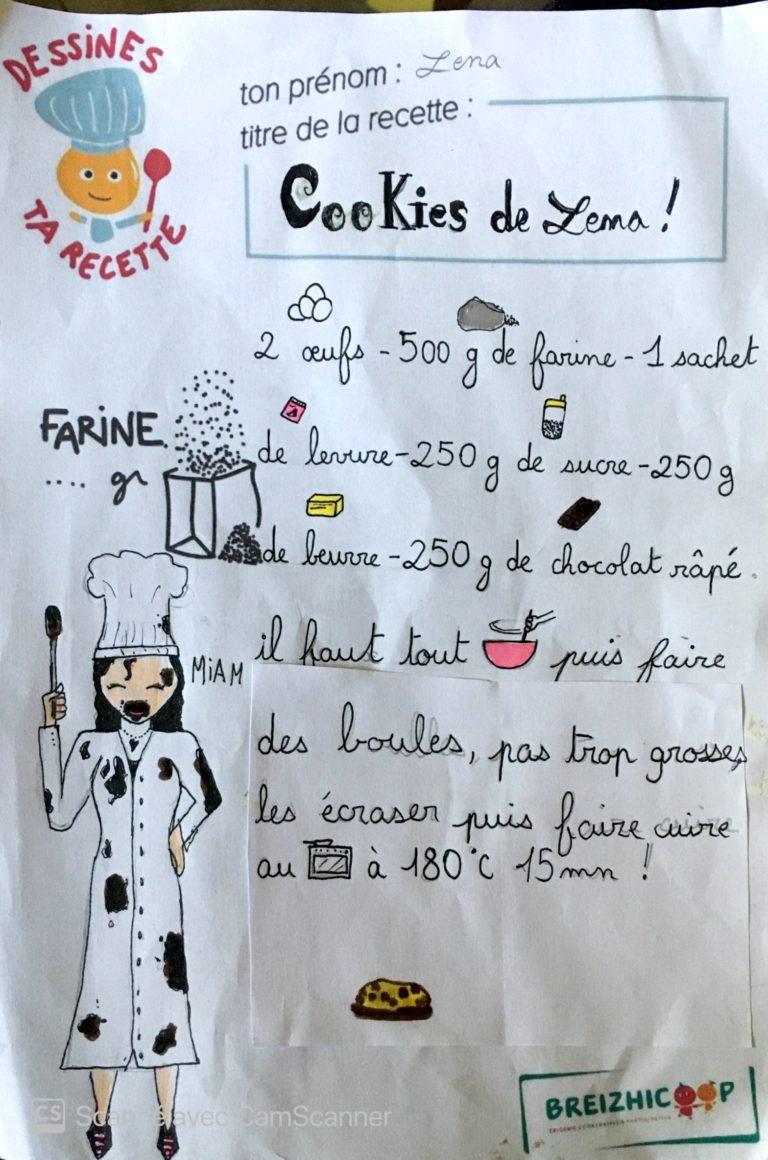 DESSINES
TA RECETTE
ton prénom : Lena
titre de la recette :
Cookies de Lena !
2 œufs - 500 g de farine - 1 sachet
FARINE
.... gr
de levure - 250 g de sucre - 250 g
de beurre - 250 g de chocolat râpé.
il faut tout puis faire
MiAM
des boules, pas trop grosses,
les écraser puis faire cuire
au à 180°C 15mn !
BREIZHICOOP
CS Scanné avec CamScanner